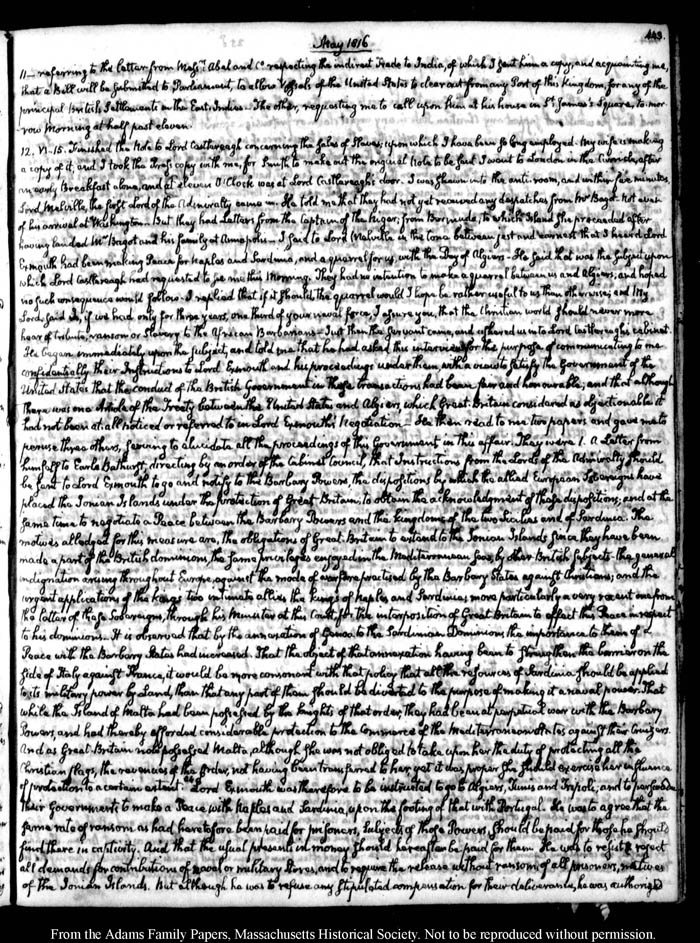 May 1816
443.
11— referring to the Letter from Mess.rs Abel and Co. respecting the indirect Trade to India, of which I sent him a copy, and acquainting me,
that a Bill will be submitted to Parliament, to allow Vessels of the United States to clear out from any Port of this Kingdom, for any of the
principal British Settlements in the East Indies. The other, requesting me to call upon him at his house in St. James's Square, to-mor
row Morning at half past eleven.
12. VI-15. Finished the Note to Lord Castlereagh concerning the Sales of Slaves; upon which I have been so long employed. My wife is making
a copy of it, and I took the Press copy with me, for Smith to make out the original Note to be sent. I went to London in the Church, after
an early Breakfast alone, and at eleven O'Clock was at Lord Castlereagh's door. I was shewn into the anti-room, and within five minutes
Lord Melville, the first Lord of the Admiralty came in. He told me that they had not yet received any despatches from Mr Bagot. Not even
of his arrival at Washington. But they had Letters from the Captain of the Niger, from Bermuda, to which Island she proceeded after
having landed Mr Bagot and his family at Annapolis. I said to Lord Melville in the tone between jest and earnest that I heard Lord
Exmouth had been making Peace for Naples and Sardinia, and a quarrel for us, with the Dey of Algiers. He said that was the subject upon
which Lord Castlereagh had requested to see me this Morning. They had no intention to make a quarrel between us and Algiers, and hoped
no such consequence would follow. I replied that if it should, the quarrel would I hope be rather useful to us than otherwise; and My
Lord, said I, if we had only for three years, one third of your naval force, I assure you, that the Christian world should never more
hear of tribute, ransom or Slavery to the African Barbarians. Just then the Servant came, and ushered us into Lord Castlereagh's cabinet.
He began immediately upon the subject, and told me that he had asked this interview for the purpose of communicating to me
confidentially their Instructions to Lord Exmouth and his proceedings under them with a view to satisfy the Government of the
United States that the conduct of the British Government in these transactions had been fair and honourable; and that although
there was one Article of the Treaty between the United States and Algiers, which Great Britain considered as objectionable it
had not been at all noticed or referred to in Lord Exmouth's Negotiation. He then read to me two papers and gave me to
peruse three others, serving to elucidate all the proceedings of this Government in this affair. They were 1. A Letter from
himself to Earl Bathurst, directing by an order of the Cabinet Council, that Instructions from the Lords of the Admiralty should
be sent to Lord Exmouth to go and notify to the Barbary Powers, the dispositions by which the allied European Sovereigns have
placed the Ionian Islands under the protection of Great Britain; to obtain the acknowledgment of those dispositions; and at the
same time to negotiate a Peace between the Barbary Powers and the Kingdoms of the two Sicilies and of Sardinia. The
motives alledged for this measure are, the obligations of Great Britain to extend to the Ionian Islands since they have been
made a part of the British dominions, the same privileges enjoyed in the Mediterranean Seas by other British subjects. the general
indignation arising throughout Europe, against the mode of warfare practised by the Barbary States against Christians; and the
urgent applications of the Kings two intimate allies the Kings of Naples and Sardinia; more particularly a very recent one from
the latter of these Sovereigns, through his Minister at this Court, for the interposition of Great Britain to effect this Peace in respect
to his dominions. It is observed that by the annexation of Genoa to the Sardinian Dominions the importance to them of a
Peace with the Barbary States had increased. That the object of that annexation having been to strengthen the barrier on the
side of Italy against France, it would be more consonant with that policy that all the resources of Sardinia should be applied
to its military power by Land, than that any part of them should be diverted to the purpose of making it a naval power. That
while the Island of Malta had been possessed by the Knights of that order, they had been at perpetual war with the Barbary
Powers, and had thereby afforded considerable protection to the Commerce of the Mediterranean States against their cruizers.
And as Great Britain now possessed Malta, although she was not obliged to take upon her the duty of protecting all the
Christian flags, the revenues of the Order, not having been transferred to her, yet it was proper she should exercise her influence
of protection to a certain extent. Lord Exmouth was therefore to be instructed to go to Algiers, Tunis and Tripoli, and to persuade
their Governments to make a Peace with Naples and Sardinia, upon the footing of that with Portugal. He was to agree that the
same rate of ransom as had heretofore been paid for prisoners, Subjects of those Powers, should be paid for those he should
find there in captivity. And that the usual presents in money should hereafter be paid for them. He was to resist & reject
all demands for contributions of naval or military Stores, and to require the release without ransom, of all prisoners, natives
of the Ionian Islands. But although he was to refuse any stipulated compensation for their deliverance, he was authorized
From the Adams Family Papers, Massachusetts Historical Society. Not to be reproduced without permission.